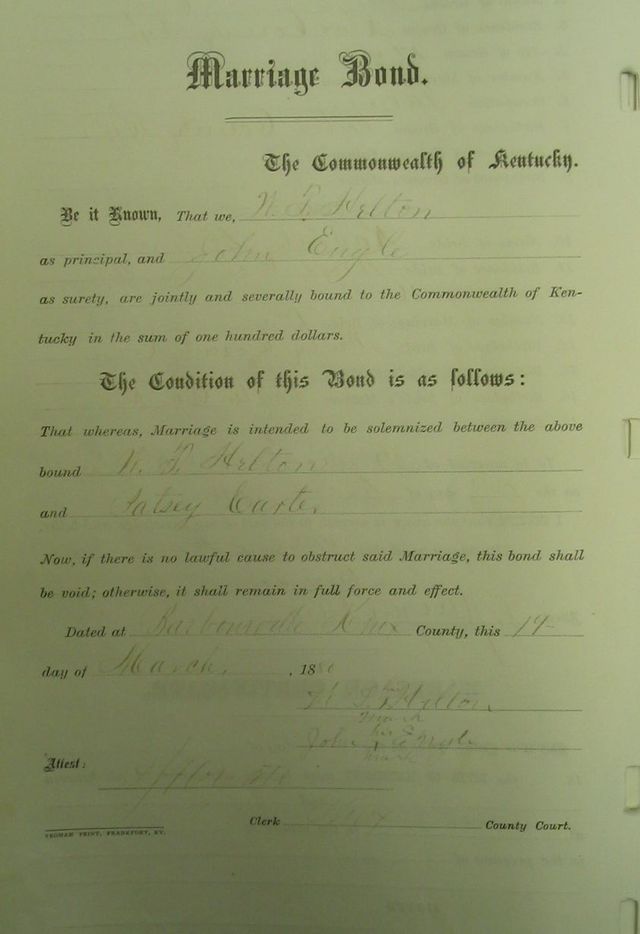 Marriage Bond.
The Commonwealth of Kentucky.
Be it Known, That we, W. F. Helton
as principal, and John Engle
as surety, are jointly and severally bound to the Commonwealth of Ken-
tucky in the sum of one hundred dollars.
The Condition of this Bond is as follows:
That whereas, Marriage is intended to be solemnized between the above
bound W. F. Helton
and Patsey Carter
Now, if there is no lawful cause to obstruct said Marriage, this bond shall
be void; otherwise, it shall remain in full force and effect.
Dated at Barbourville Knox County, this
day of March , 18
Helton
mark
his
John Engle
mark
Attest:
Clerk County Court.
YEOMAN PRINT, FRANKFORT, KY.